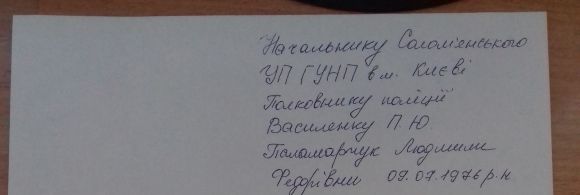 Начальнику Солом'янського
УП ГУНП в м. Києві
Полковнику поліції
Василенку П.Ю.
Паламарчук Людмили
Федрівни 09.07.1976 р.н